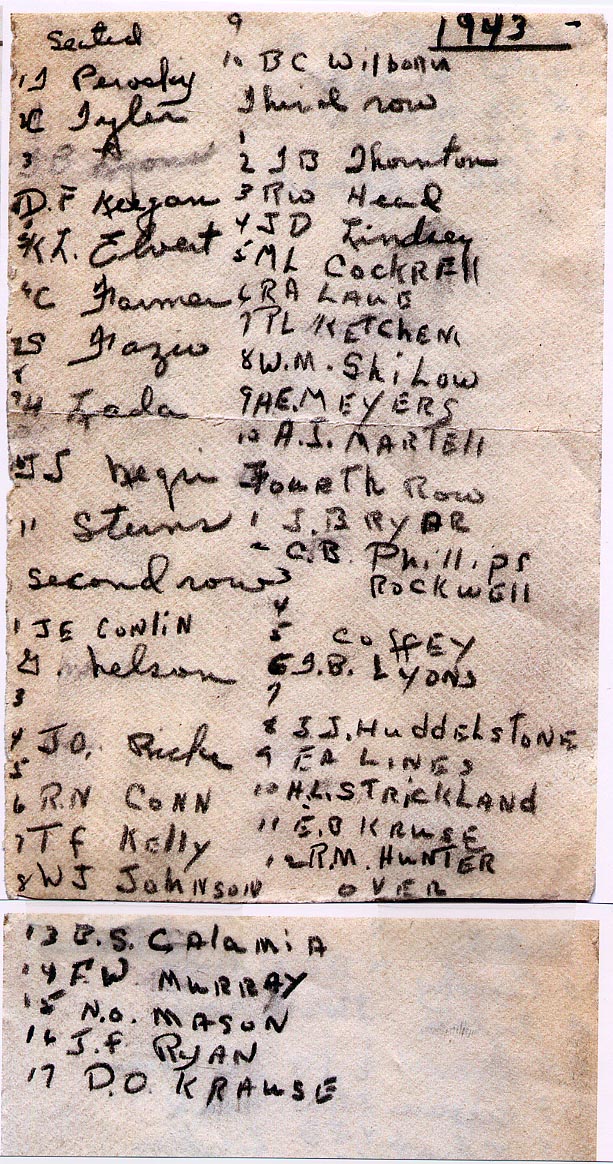 1943 -
Seated
1 J Perosky
2 C Tyler
3
D.F Keegan
5 K L. Elvert
6 C Farmer
7 S Fazio
8
9 H Zada
10 J S
11 Sterns
second row
1 JE CONLIN
2 G. Nelson
3
4 J.O.
5
6 R.N CONN
7 T f Kelly
8 WJ JOHNSON
9
10 B C Wilborn
Third row
1
2 J B Thornton
3 RW Head
4 J D Lindsey
5 ML COCKRELL
6 RA LAWE
7 PL KETCHEN
8 W.M. SkiLow
9 HE. MEYERS
10 A.J. MARTEll
Fourth Row
1 J.B RYAR
2 C.B. Phillips
3 ROCKWEll
4
5 COffEY
6 J.B. LYONS
7
8 J.J. HuddElsTONE
9 EA LINES
10 H.L. STRicKLAND
11 E.B KRUSE
12 R.M. HUNTER
OVER
13 B.S. CAlamiA
14 F.W. MURRAY
15 N.O. MASON
16 J.f RyAN
17 D.O. KRAUSE